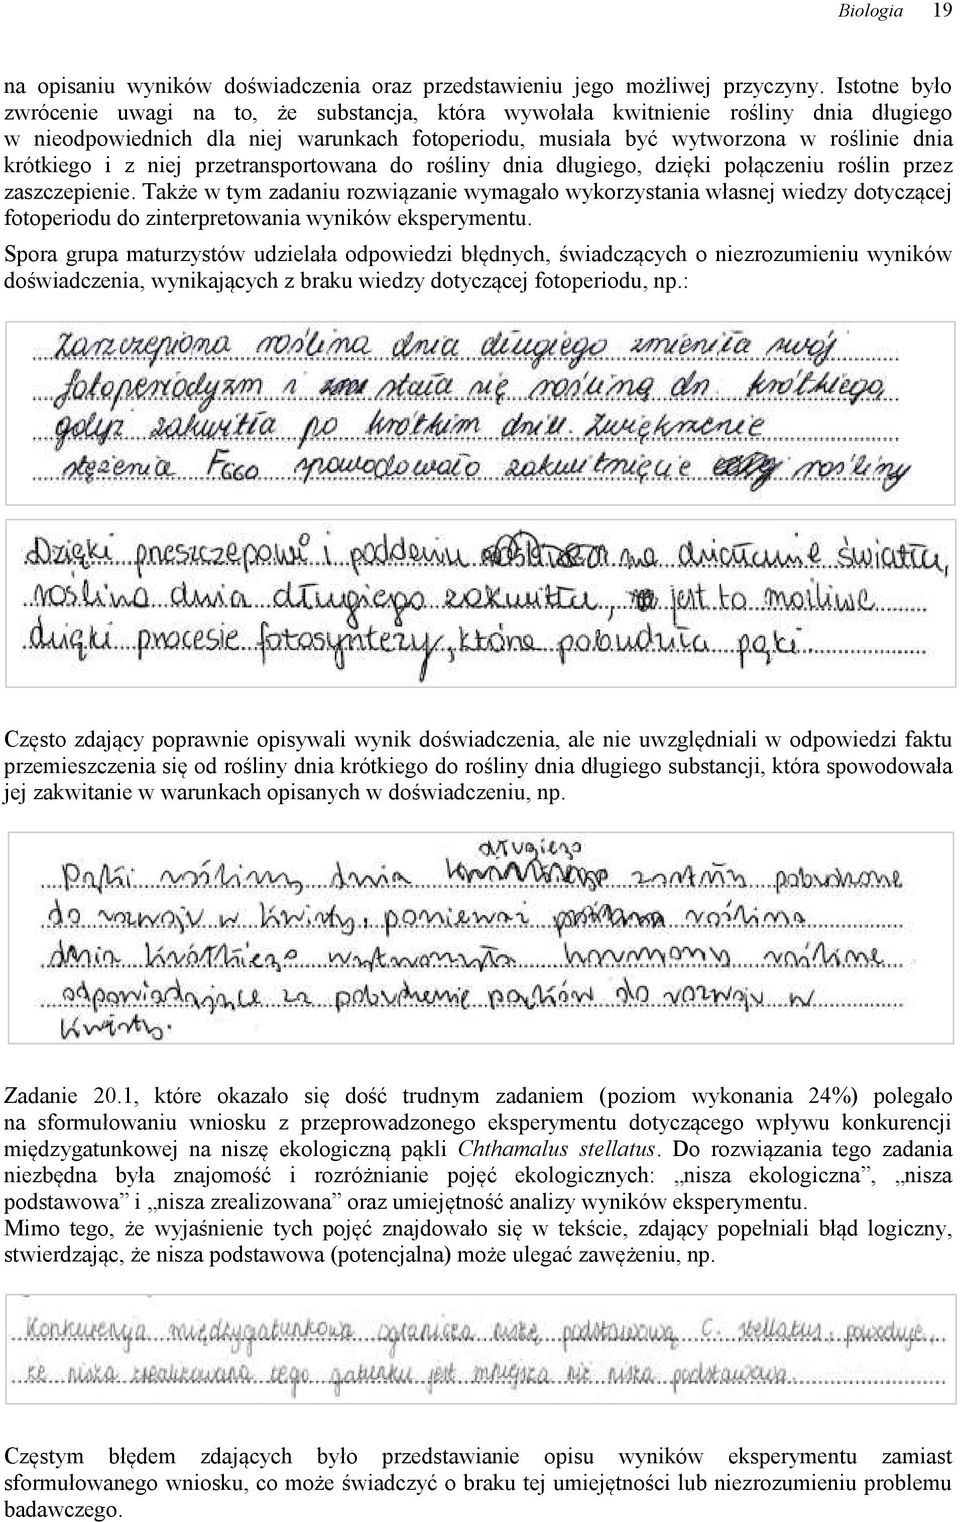 Biologia 19
na opisaniu wyników doświadczenia oraz przedstawieniu jego możliwej przyczyny. Istotne było
zwrócenie uwagi na to, że substancja, która wywołała kwitnienie rośliny dnia długiego
w nieodpowiednich dla niej warunkach fotoperiodu, musiała być wytworzona w roślinie dnia
krótkiego i z niej przetransportowana do rośliny dnia długiego, dzięki połączeniu roślin przez
zaszczepienie. Także w tym zadaniu rozwiązanie wymagało wykorzystania własnej wiedzy dotyczącej
fotoperiodu do zinterpretowania wyników eksperymentu.
Spora grupa maturzystów udzielała odpowiedzi błędnych, świadczących o niezrozumieniu wyników
doświadczenia, wynikających z braku wiedzy dotyczącej fotoperiodu, np.:
Zaszczepiona roślina dnia długiego zmieniła swój
fotoperiodyzm i stała się rośliną dn. krótkiego,
gdyż zakwitła po krótkim dniu. Zwiększenie
stężenia F660 spowodowało zakwitnięcie rośliny
Dzięki przeszczepowi i poddaniu na działanie światłu,
roślina dnia długiego zakwitła, jest to możliwe
dzięki procesie fotosyntezy, która pobudziła pąki.
Często zdający poprawnie opisywali wynik doświadczenia, ale nie uwzględniali w odpowiedzi faktu
przemieszczenia się od rośliny dnia krótkiego do rośliny dnia długiego substancji, która spowodowała
jej zakwitanie w warunkach opisanych w doświadczeniu, np.
długiego
Pąki rośliny dnia zostały pobudzone
do rozwoju w kwiaty, ponieważ roślina
dnia krótkiego wytworzyła hormony roślinne
odpowiadające za pobudzenie pąków do rozwoju w
kwiaty.
Zadanie 20.1, które okazało się dość trudnym zadaniem (poziom wykonania 24%) polegało
na sformułowaniu wniosku z przeprowadzonego eksperymentu dotyczącego wpływu konkurencji
międzygatunkowej na niszę ekologiczną pąkli Chthamalus stellatus. Do rozwiązania tego zadania
niezbędna była znajomość i rozróżnianie pojęć ekologicznych: „nisza ekologiczna”, „nisza
podstawowa” i „nisza zrealizowana” oraz umiejętność analizy wyników eksperymentu.
Mimo tego, że wyjaśnienie tych pojęć znajdowało się w tekście, zdający popełniali błąd logiczny,
stwierdzając, że nisza podstawowa (potencjalna) może ulegać zawężeniu, np.
Konkurencja międzygatunkowa ogranicza niszę podstawową C. stellatus, powoduje,
że nisza zrealizowana tego gatunku jest mniejsza niż nisza podstawowa.
Częstym błędem zdających było przedstawianie opisu wyników eksperymentu zamiast
sformułowanego wniosku, co może świadczyć o braku tej umiejętności lub niezrozumieniu problemu
badawczego.